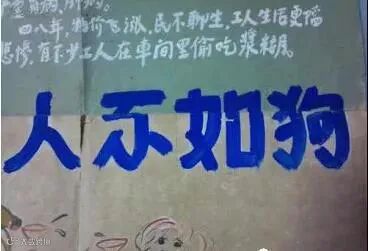 四八年,物价飞涨,民不聊生,工人生活更
悲惨,有不少工人在车间里偷吃浆糊。
人不如狗